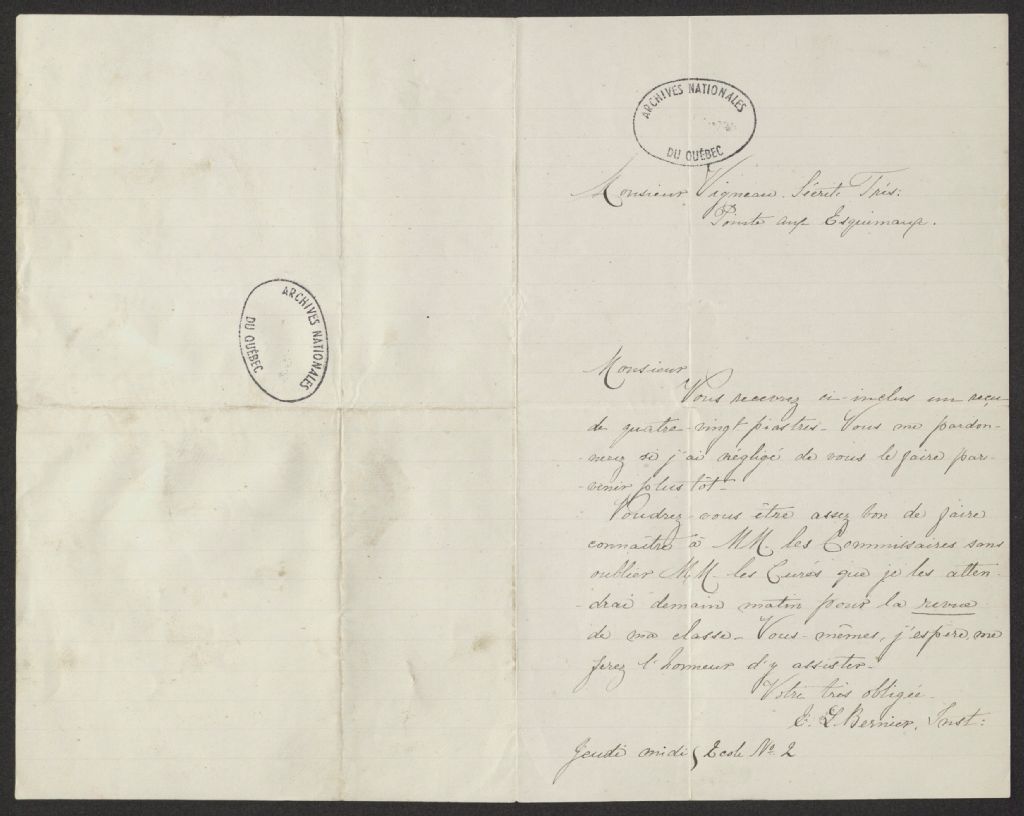 ARCHIVES NATIONALES
DU QUÉBEC
Monsieur Vigneau. Sécrét. Trés:
Pointe aux Esquimaux.
ARCHIVES NATIONALES
DU QUÉBEC
Monsieur
Vous recevrez ci-inclus un reçu
de quatre-vingt piastres. Vous me pardon-
-nerez si j'ai négligé de vous le faire par-
-venir plus tôt.
Voudrez-vous être assez bon de faire
connaître à MM. les Commissaires sans
oublier MM. les Curés que je les atten-
-drai demain matin pour la revue
de ma classe. Vous-mêmes, j'espère, me
ferez l'honneur d'y assister.
Votre très obligée.
E. L. Bernier, Inst:
Jeudi midi } Ecole No. 2